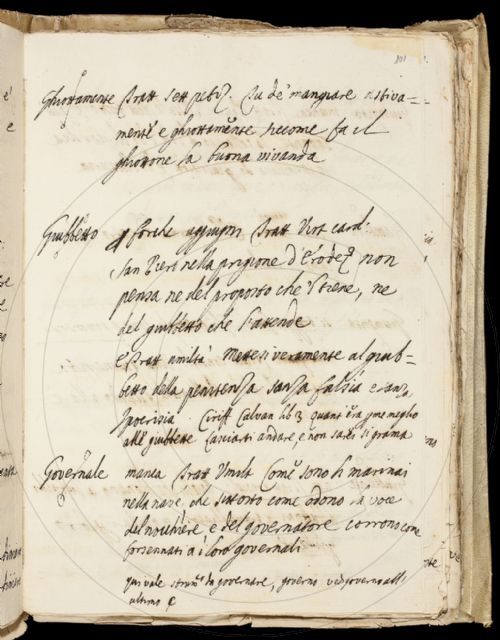 101
Ghiottamente Tratt sett petiz. Tu de' mangiare astiva=
mente e ghiottamente siccome fa il
ghiottone la buona vivanda
Giubbetto forche aggiugni Tratt Virt card.
San Piero nella prigione d'Erode non
pensa ne del proposto che 'l tiene, ne
del giubbetto che l'attende
E Tratt umiltà Mettesi veramente al giub=
betto della penitenza sanza falsía e sanza
Ipocrisia Ciriff Calvan lib 3 quant'era pme meglio
alle giubbette lasciarti andare, e non sarei sì grama
Governale manca Tratt Umilt Come sono li marinai
nella nave, che sì tosto come odono la voce
del nocchiere, e del governatore corrono come
forsennati a i loro governali
qui vale strum. da governare, governo ved governo all
ultimo §